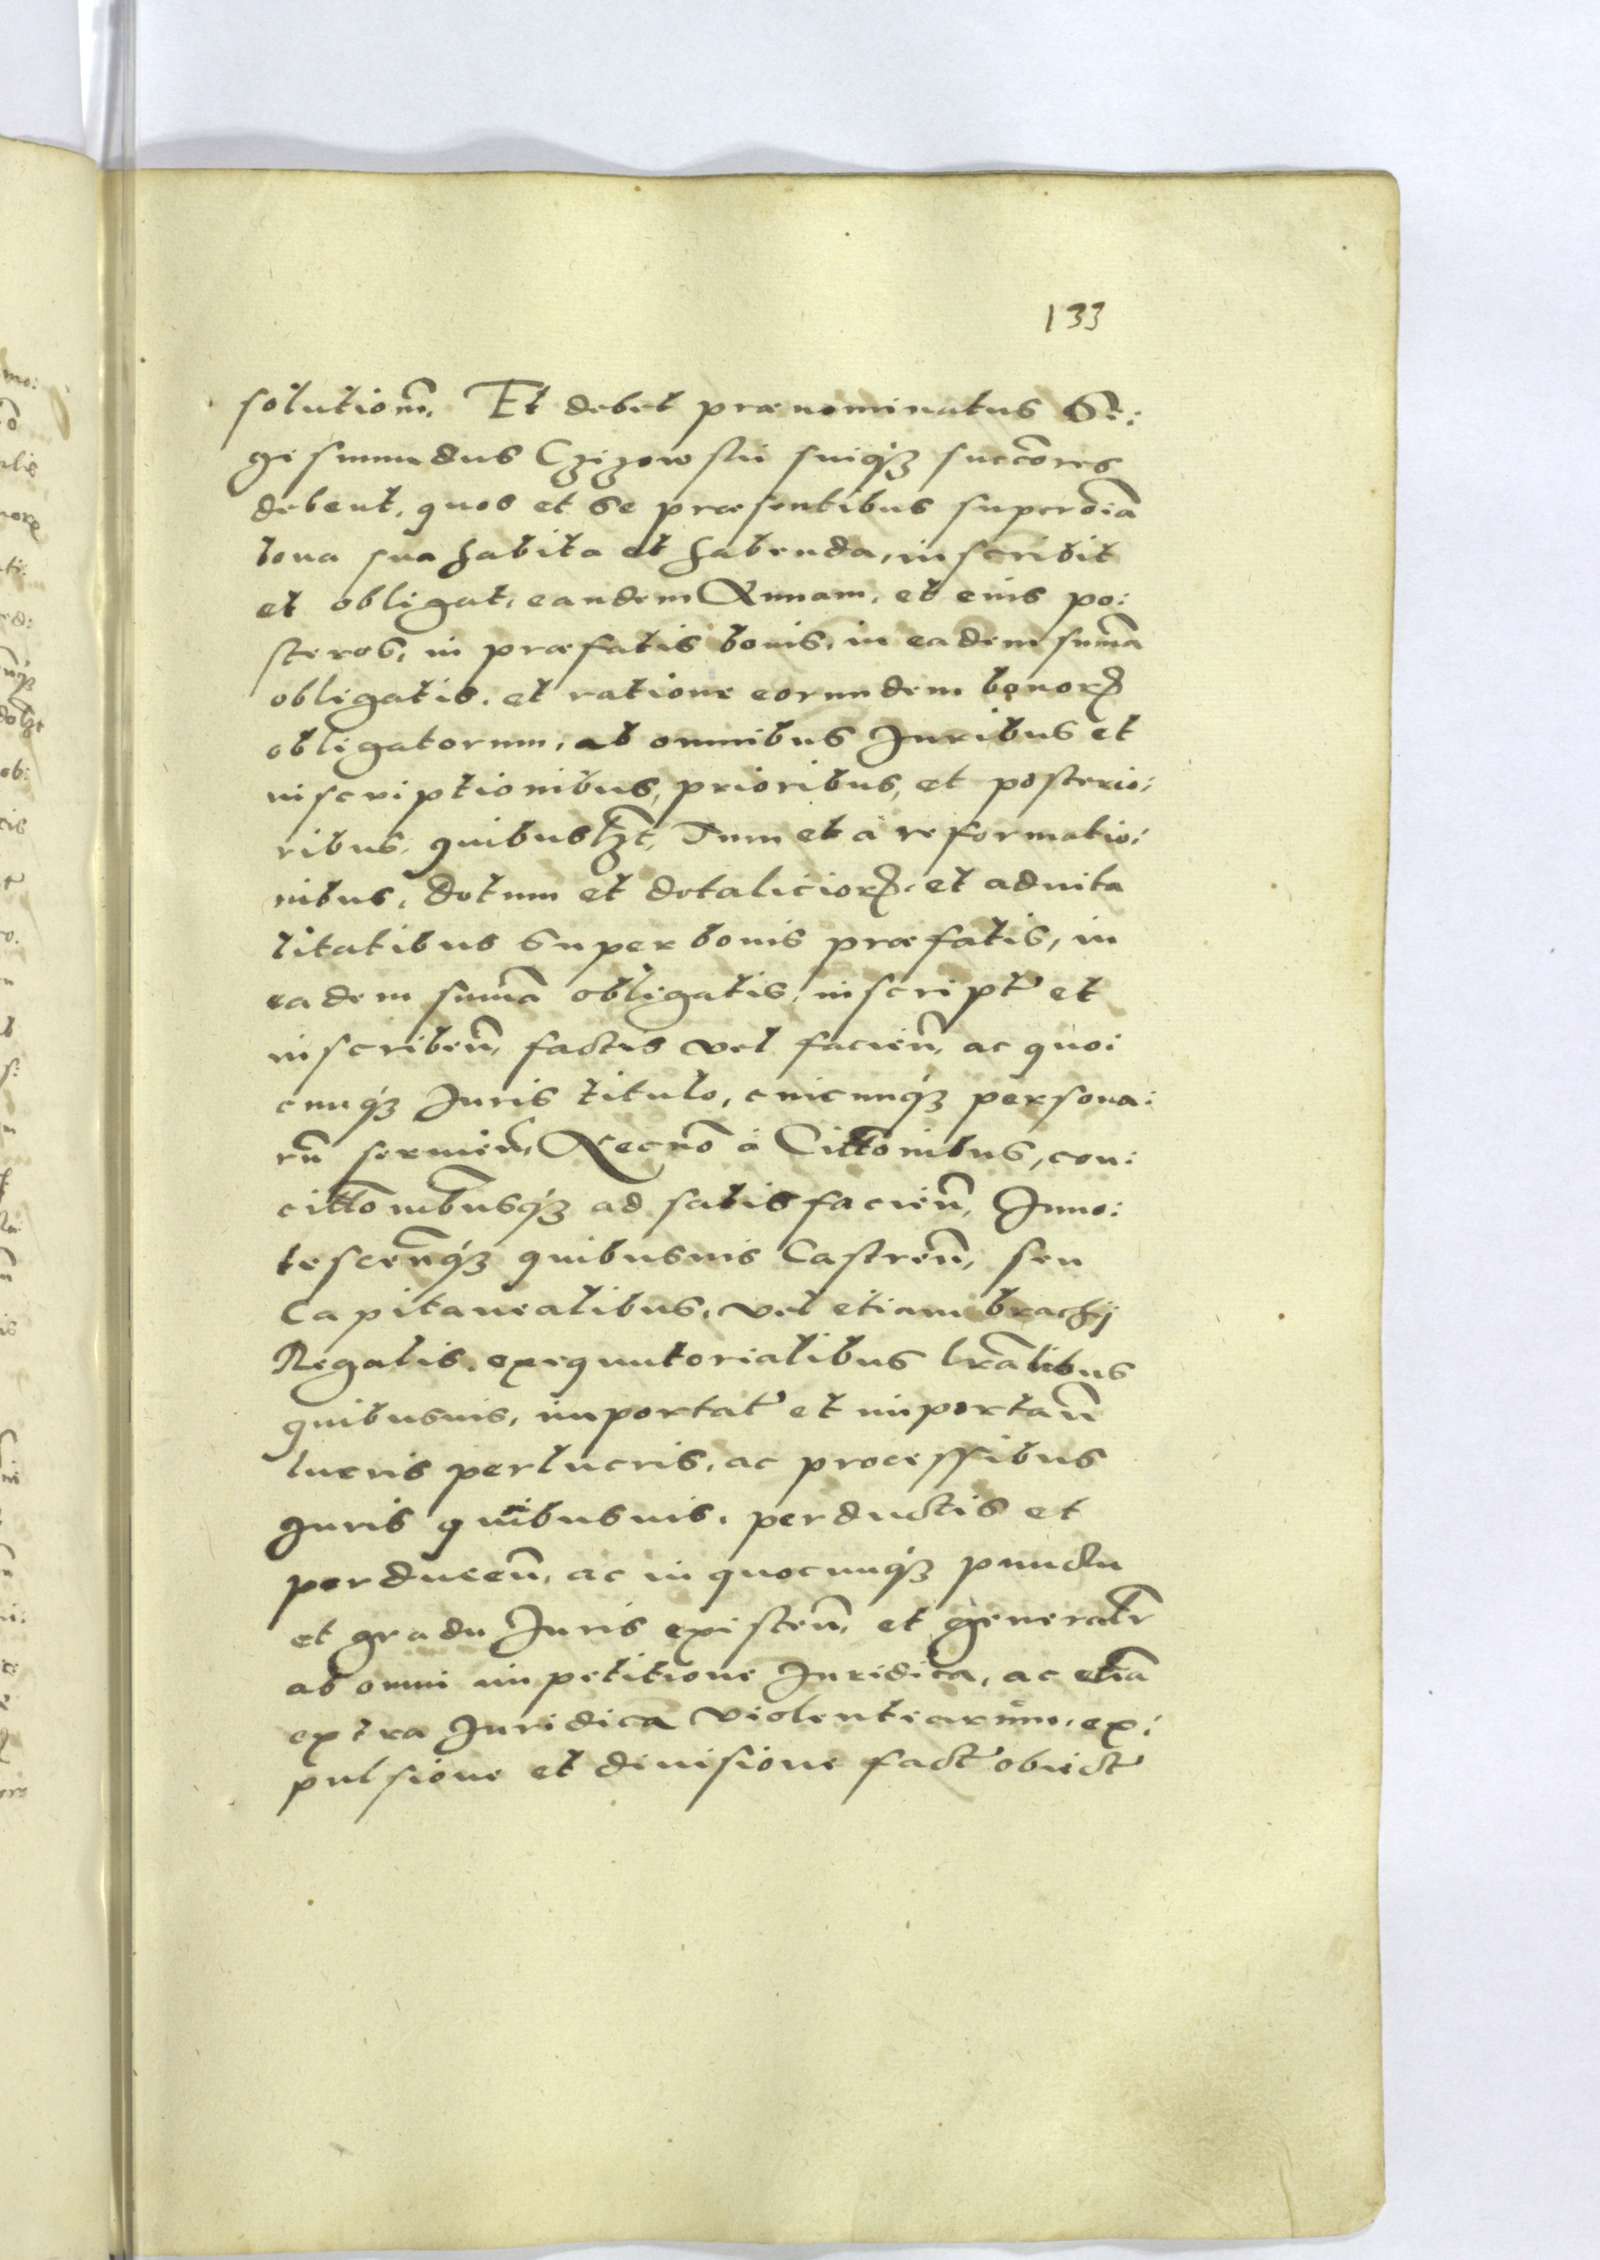 133
solutionem̃. Et debet prænominatus Si:
gismundus Czizowski suiq́ꝫ succõres
debent, quos et se præsentibus super oĩa
bona sua habita et habenda, inscribit
et obligat, eandem Annam, et eius po:
steros, in præfatis bonis, in eadem sum̃a
obligatis. et ratione eorumdem bonorꝝ
obligatorum, ab omnibus Iuribus et
inscriptionibus, prioribus, et posterio:
ribus, quibuslꝫt, Tum et à reformatio:
nibus, dotum et dotaliciorꝝ. et aduita
litatibus super bonis præfatis, in
eadem sum̃a obligatis, inscript̃ et
inscribeñ, factis vel facieñ, ac quo:
cunq́ꝫ Iuris titulo, cuicunq́ꝫ persona:
rũ seruieñ, Necnõ à Citt̃onibus, con:
citt̃onibusq́ꝫ ad satisfacieñ, Inno:
tesceñq́ꝫ quibusuis Castreñ, seu
Capitanealibus, vel etiam brachij
Regalis, exequutorialibus lr̃alibus
quibusuis, importat̃ et importañ
lucris perlucris, ac processibus
Iuris quibusuis, perductis et
perduceñ, ac in quocunq́ꝫ punctu
et gradu Iuris existeñ, et generalr̃
ab omni impetitione Iuridica, ac etiã
extra Iuridica violentiarum, ex:
pulsione et diuisione fact̃ obiect̃